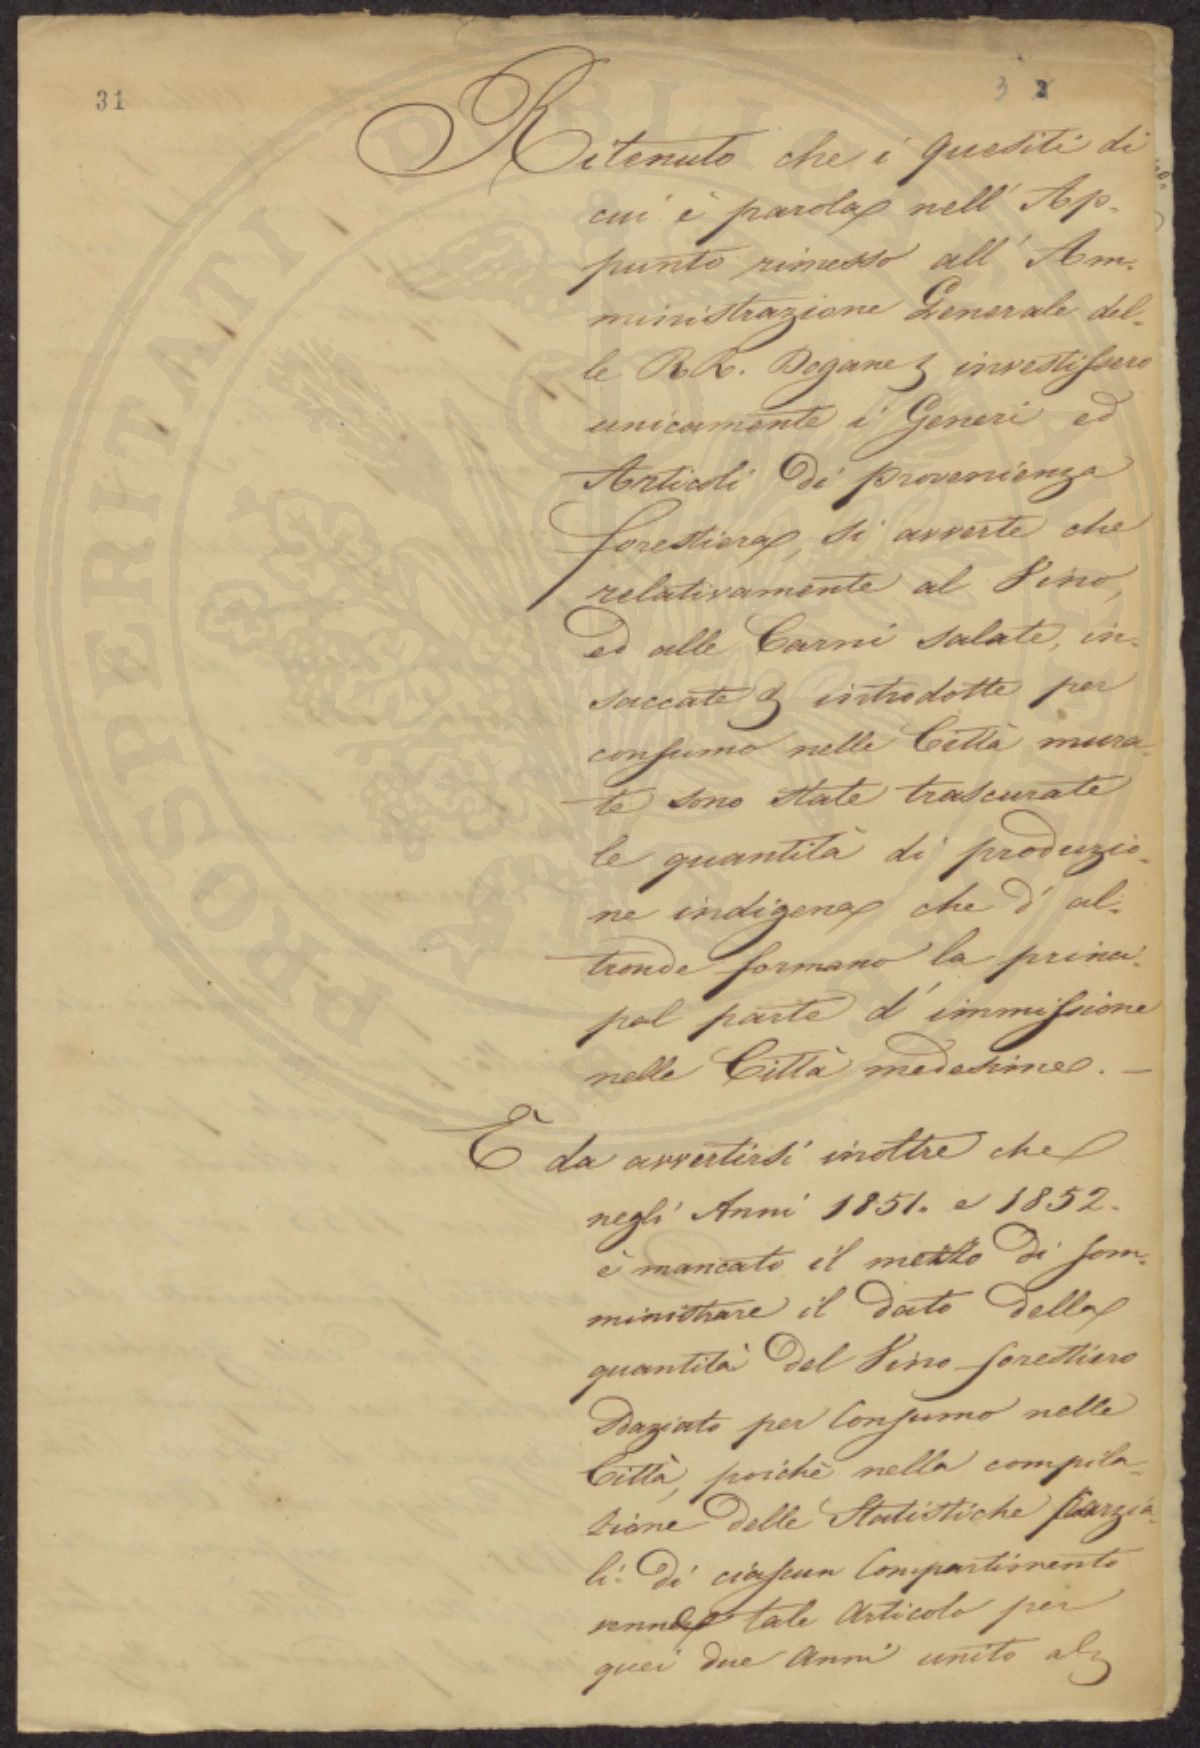 31
3 2
Ritenuto che i quesiti di
cui è parola nell' Ap-
punto rimesso all' Am-
ministrazione Generale del-
le RR. Dogane investissero
unicamente i Generi ed
Articoli di provenienza
forestiera, si avverte che
relativamente al Vino,
ed alle Carni salate, in-
saccate introdotte per
consumo nelle Città mura-
te sono state trascurate
le quantità di produzio-
ne indigena che d' al-
tronde formano la princi-
pal parte d' immissione
nelle Città medesime. —
È da avvertirsi inoltre che
negli Anni 1851. e 1852.
è mancato il mezzo di som-
ministrare il dato della
quantità del Vino forestiero
Daziato per Consumo nelle
Città, poichè nella compila-
zione delle Statistiche Parzia-
li di ciascun Compartimento
venne tale Articolo per
quei due anni unito al
PROSPERITATI PUBLICAE AUGENDAE